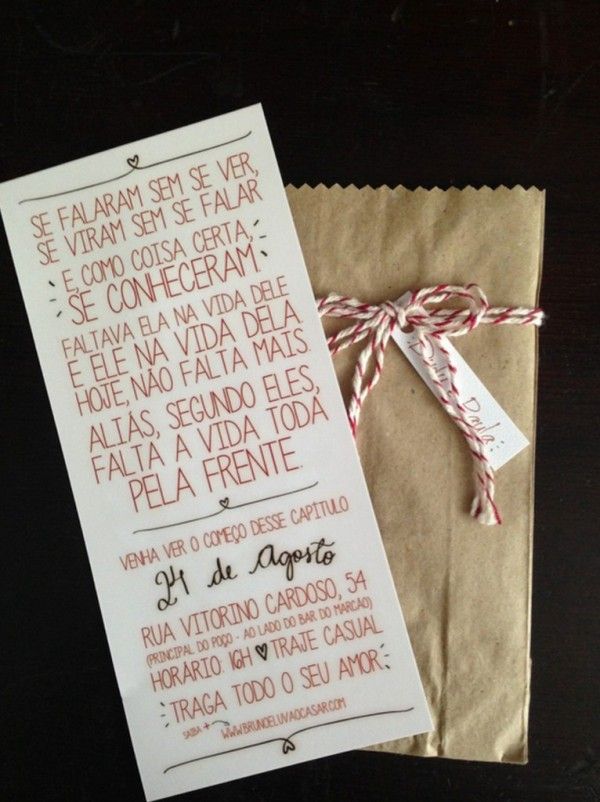 SE FALARAM SEM SE VER,
SE VIRAM SEM SE FALAR
E, COMO COISA CERTA,
SE CONHECERAM.
FALTAVA ELA NA VIDA DELE
E ELE NA VIDA DELA
HOJE, NÃO FALTA MAIS.
ALIÁS, SEGUNDO ELES,
FALTA A VIDA TODA
PELA FRENTE.
VENHA VER O COMEÇO DESSE CAPÍTULO
24 de Agosto
RUA VITORINO CARDOSO, 54
(PRINCIPAL DO POÇO - AO LADO DO BAR DO MARCÃO)
HORÁRIO: 16H ♥ TRAJE CASUAL
TRAGA TODO O SEU AMOR.
SAIBA + WWW.BRUNOELUVAOCASAR.COM
Paula